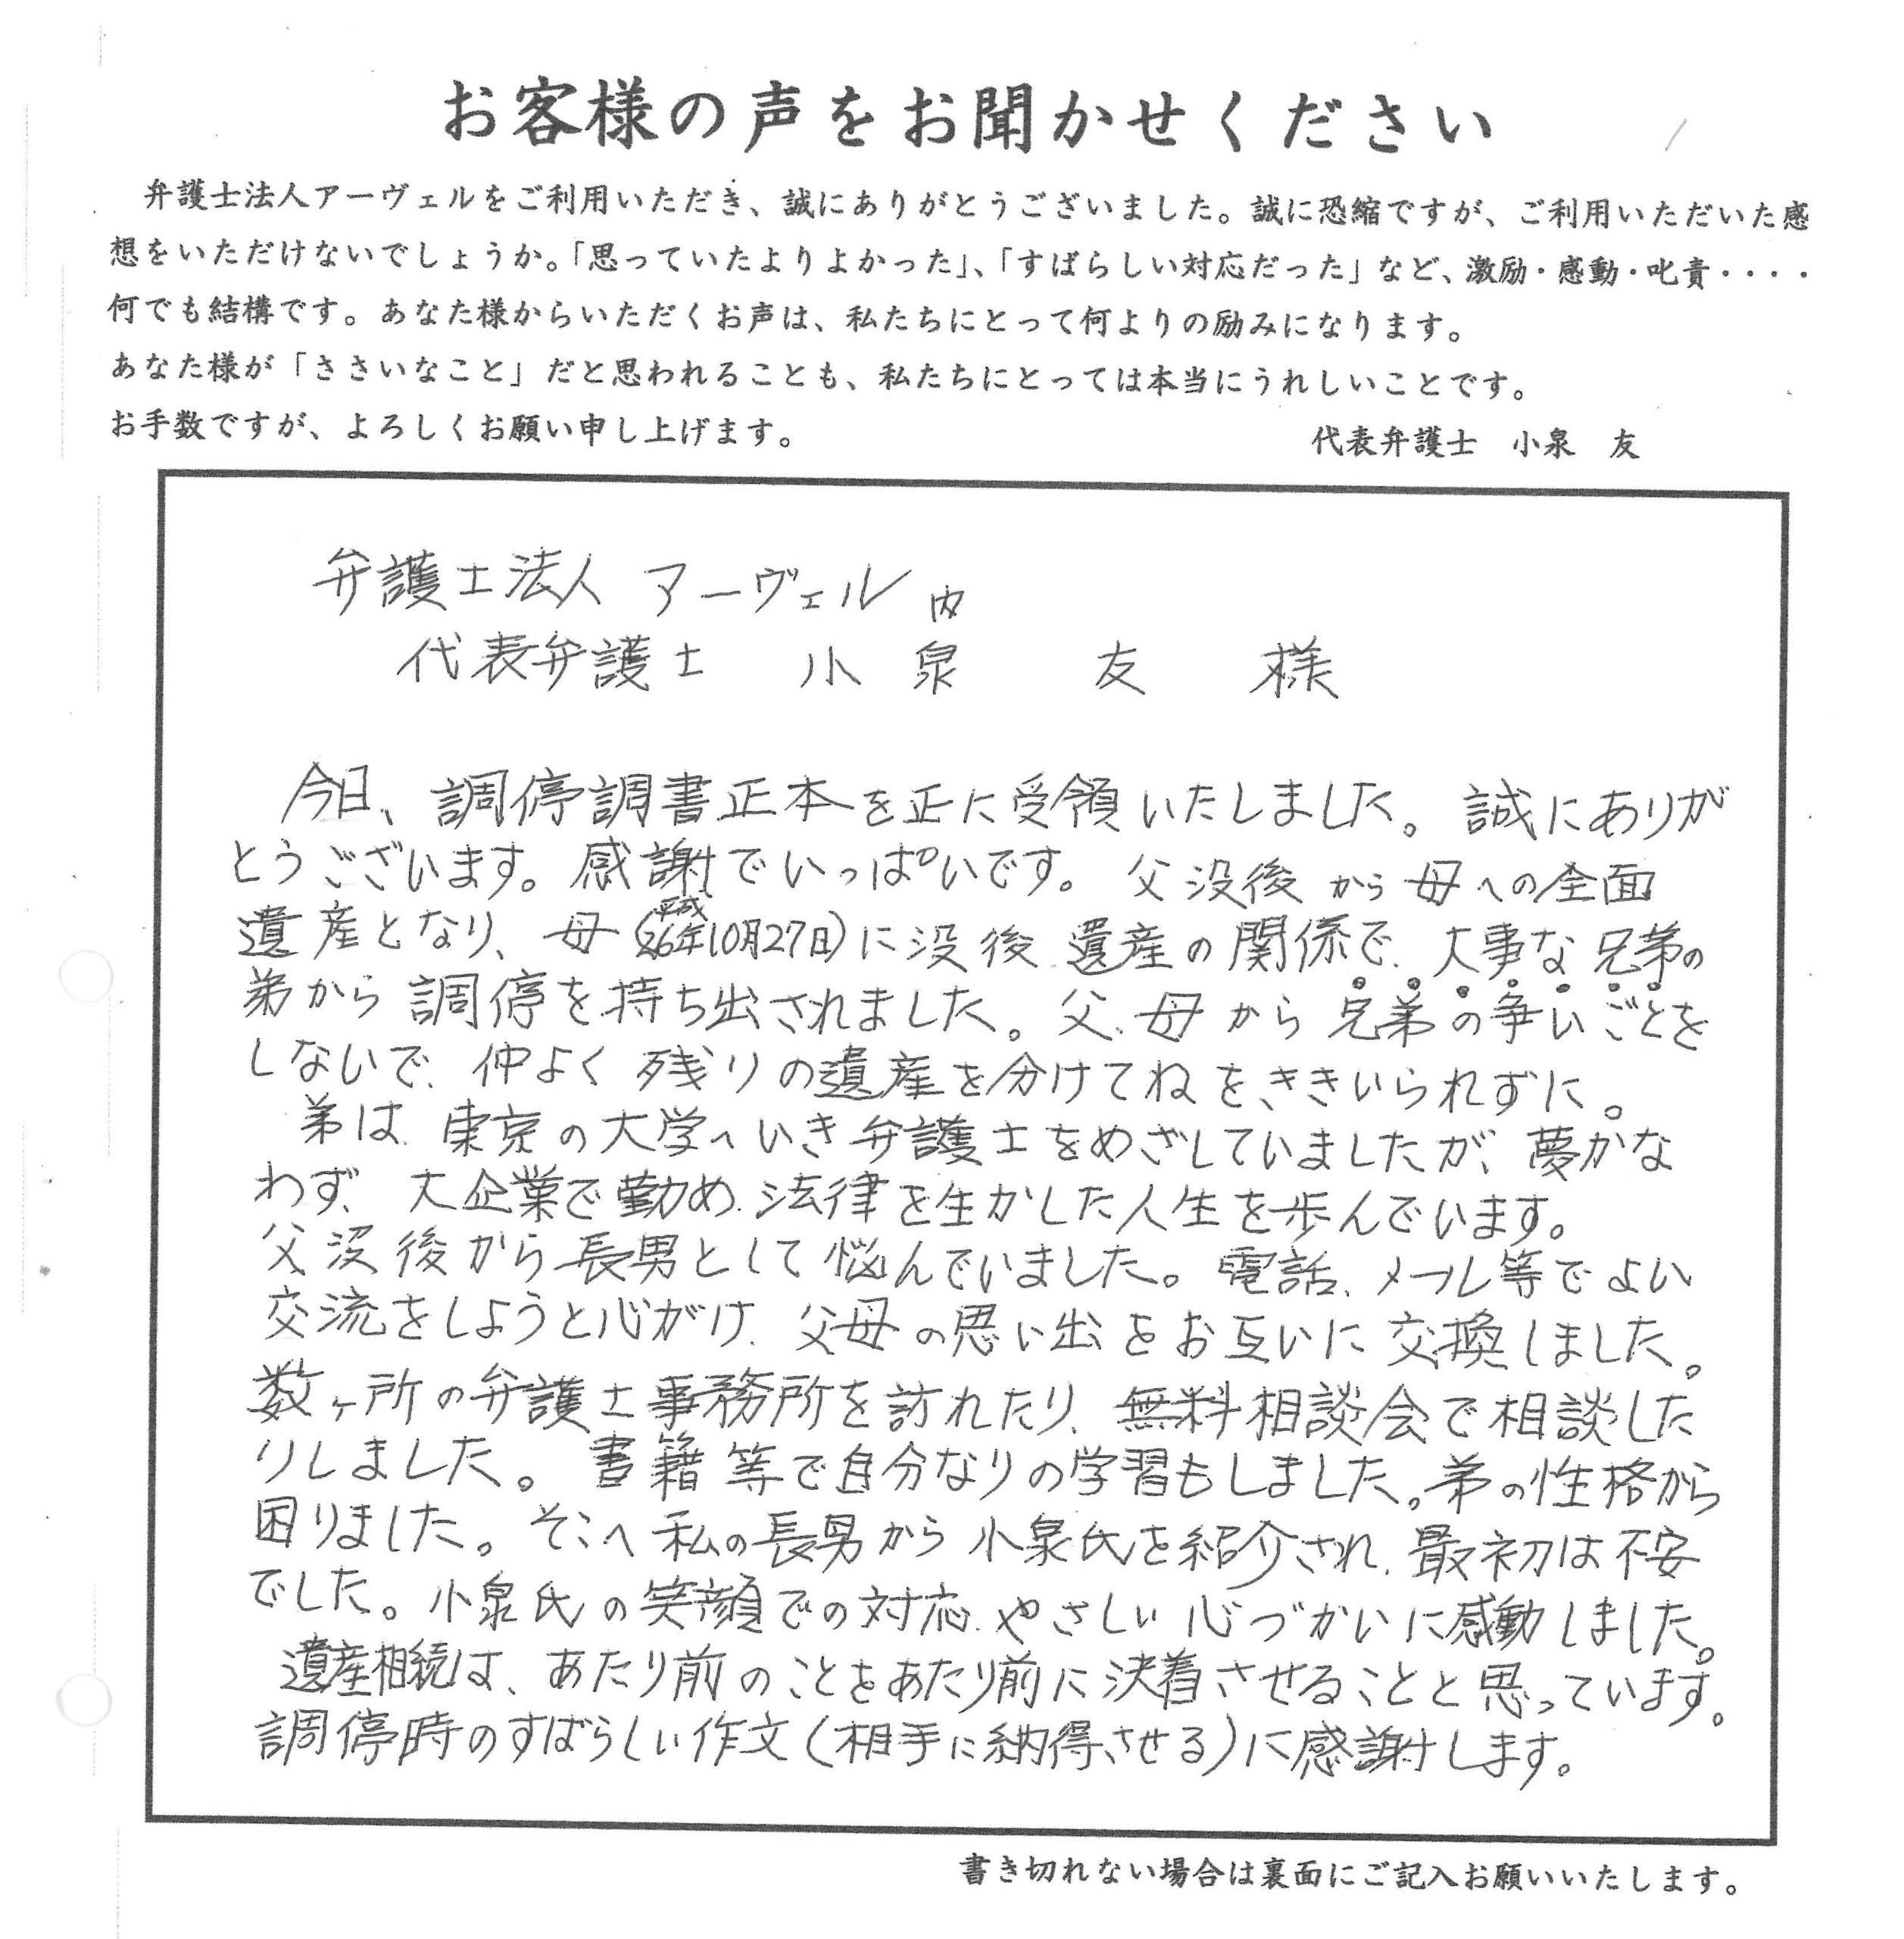 お客様の声をお聞かせください
弁護士法人アーヴェルをご利用いただき、誠にありがとうございました。誠に恐縮ですが、ご利用いただいた感
想をいただけないでしょうか。「思っていたよりよかった」、「すばらしい対応だった」など、激励・感動・叱責・・・・
何でも結構です。あなた様からいただくお声は、私たちにとって何よりの励みになります。
あなた様が「ささいなこと」だと思われることも、私たちにとっては本当にうれしいことです。
お手数ですが、よろしくお願い申し上げます。
代表弁護士 小泉 友
弁護士法人 アーヴェル 内
代表弁護士 小泉 友 様
今日、調停調書正本を正に受領いたしました。誠にありが
とうございます。感謝でいっぱいです。父没後から母への全面
遺産となり、母(平成26年10月27日)に没後遺産の関係で、大事な兄弟の
弟から調停を持ち出されました。父、母から兄弟の争いごとを
しないで、仲よく残りの遺産を分けてねをききいられずに。
弟は、東京の大学へいき弁護士をめざしていましたが、夢かな
わず、大企業で勤め、法律を生かした人生を歩んでいます。
父没後から長男として悩んでいました。電話、メール等でよい
交流をしようと心がけ、父母の思い出をお互いに交換しました。
数ヶ所の弁護士事務所を訪れたり、無料相談会で相談した
りしました。書籍等で自分なりの学習もしました。弟の性格から
困りました。そこへ私の長男から小泉氏を紹介され、最初は不安
でした。小泉氏の笑顔での対応、やさしい心づかいに感動しました。
遺産相続は、あたり前のことをあたり前に決着させることと思っています。
調停時のすばらしい作文(相手に納得させる)に感謝します。
書き切れない場合は裏面にご記入お願いいたします。